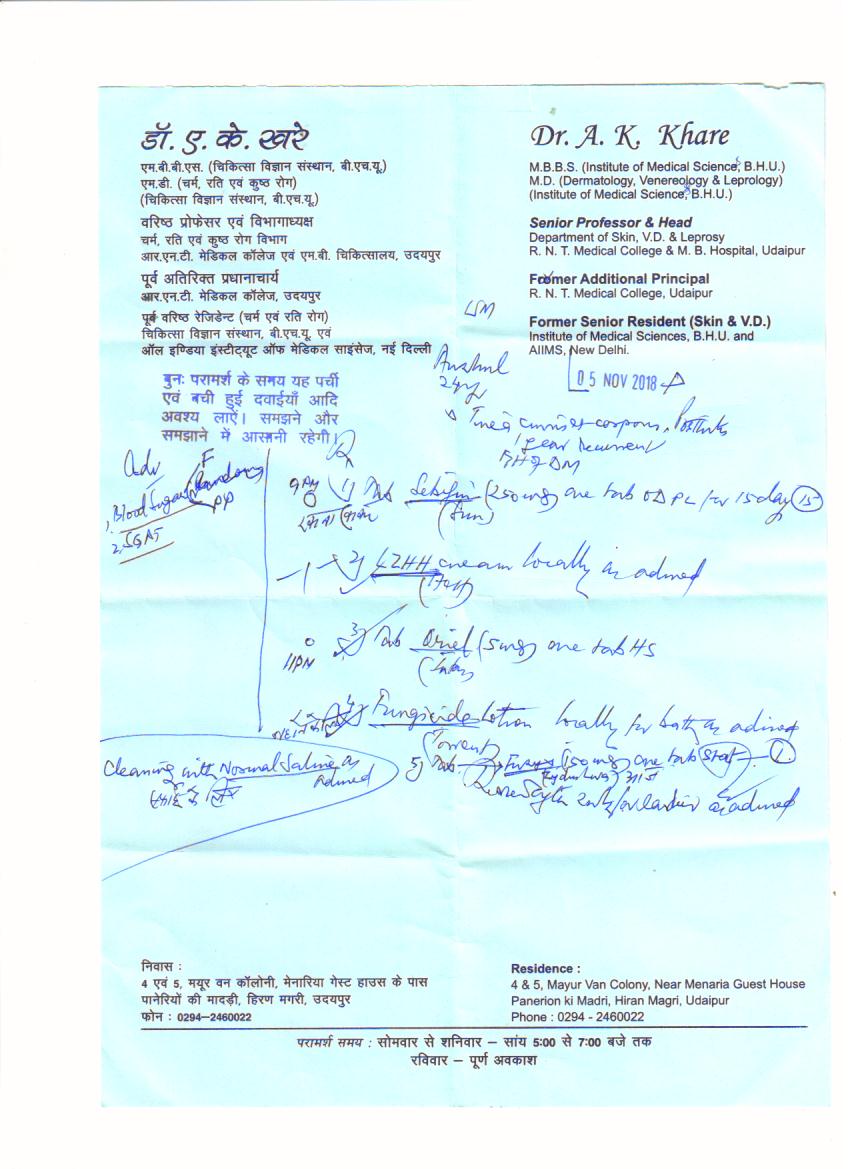 डॉ. ए. के. खरे
एम.बी.बी.एस. (चिकित्सा विज्ञान संस्थान, बी.एच.यू.)
एम.डी. (चर्म, रति एवं कुष्ठ रोग)
(चिकित्सा विज्ञान संस्थान, बी.एच.यू.)
वरिष्ठ प्रोफेसर एवं विभागाध्यक्ष
चर्म, रति एवं कुष्ठ रोग विभाग
आर.एन.टी. मेडिकल कॉलेज एवं एम.बी. चिकित्सालय, उदयपुर
पूर्व अतिरिक्त प्रधानाचार्य
आर.एन.टी. मेडिकल कॉलेज, उदयपुर
पूर्व वरिष्ठ रेजिडेन्ट (चर्म एवं रति रोग)
चिकित्सा विज्ञान संस्थान, बी.एच.यू. एवं
ऑल इण्डिया इंस्टीट्यूट ऑफ मेडिकल साइंसेज, नई दिल्ली
Dr. A. K. Khare
M.B.B.S. (Institute of Medical Science, B.H.U.)
M.D. (Dermatology, Venereology & Leprology)
(Institute of Medical Science, B.H.U.)
Senior Professor & Head
Department of Skin, V.D. & Leprosy
R. N. T. Medical College & M. B. Hospital, Udaipur
Former Additional Principal
R. N. T. Medical College, Udaipur
Former Senior Resident (Skin & V.D.)
Institute of Medical Sciences, B.H.U. and
AIIMS, New Delhi.
05 NOV 2018
पुनः परामर्श के समय यह पर्ची
एवं बची हुई दवाईयाँ आदि
अवश्य लाऐं। समझने और
समझाने में आसानी रहेगी।
Anshul
24y
Adv
F
1, Blood Sugar
PP
2, SGPT
1 year recurrent
9 PM 1) Tab (250 mg) one tab OD PC for 15 days 15
2) 4ZHH cream locally as advised
11PM 3) Tab (5mg) one tab HS
4) Fungicide Lotion locally for bath as advised
(Torrent)
5) Tab (150mg) one tab Stat 1
as advised
Cleaning with Normal Saline as
advised
निवास :
4 एवं 5, मयूर वन कॉलोनी, मेनारिया गेस्ट हाउस के पास
पानेरियों की मादड़ी, हिरण मगरी, उदयपुर
फोन : 0294–2460022
Residence :
4 & 5, Mayur Van Colony, Near Menaria Guest House
Panerion ki Madri, Hiran Magri, Udaipur
Phone : 0294 - 2460022
परामर्श समय : सोमवार से शनिवार – सांय 5:00 से 7:00 बजे तक
रविवार – पूर्ण अवकाश